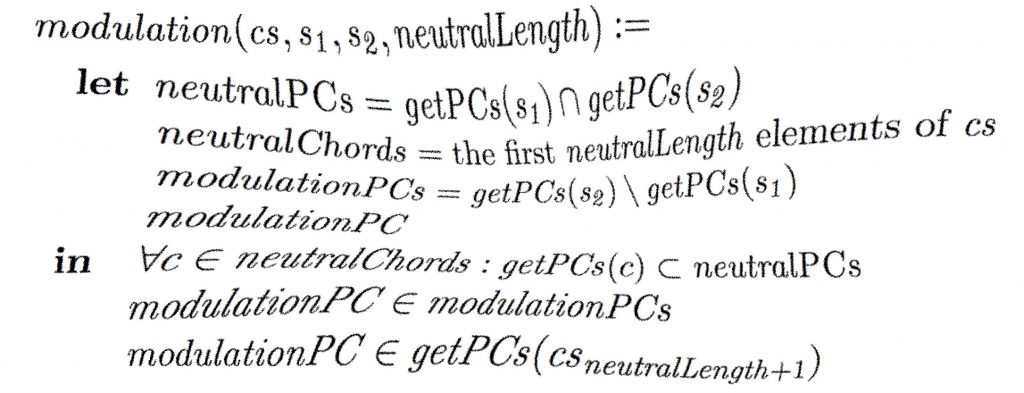 modulation(cs, s₁, s₂, neutralLength) :=
let neutralPCs = getPCs(s₁) ∩ getPCs(s₂)
neutralChords = the first neutralLength elements of cs
modulationPCs = getPCs(s₂) \ getPCs(s₁)
modulationPC
in ∀c ∈ neutralChords : getPCs(c) ⊂ neutralPCs
modulationPC ∈ modulationPCs
modulationPC ∈ getPCs(cs_{neutralLength+1})